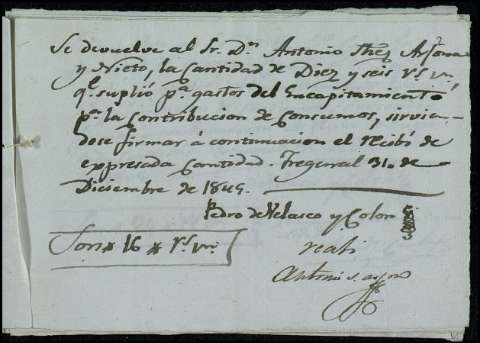 Se devuelve al Sr. Dn. Antonio
y Nieto, la Cantidad de Diez y seis rs. vn.
qe. suplió pa. gastos del Encapitamiento
pa. la Contribucion de Consumos, sirvien-
dose firmar á continuacion el recibí de
expresada Cantidad. Fregenal 31. de
Diciembre de 1845.
Pedro de Velasco y Colon
Son 16 rs. vn.
Antonio